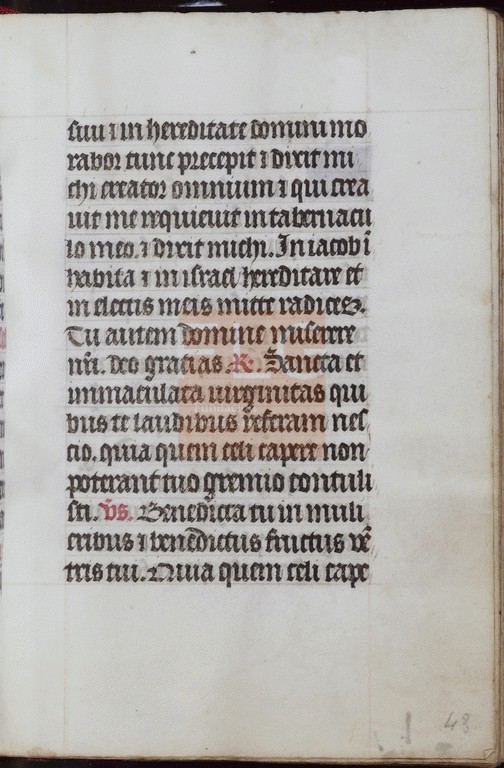 suu ⁊ in hereditate domini mo
rabor tunc precepit ⁊ dixit mi
chi creator omnium ⁊ qui crea
uit me requieuit in tabernacu
lo meo. ⁊ dixit michi. In iacob ī
habita ⁊ in israel hereditare et
in electis meis mitte radices.
Tu autem domine miserere
nr̄i. deo gracias R̷. Sancta et
immaculata uirginitas qui
bus te laudibus referam nes
cio. quia quem celi capere non
poterant tuo gremio contuli
sti. v̄s. Benedicta tu in muli
eribus ⁊ benedictus fructus vē
tris tui. Quia quem celi cape
48